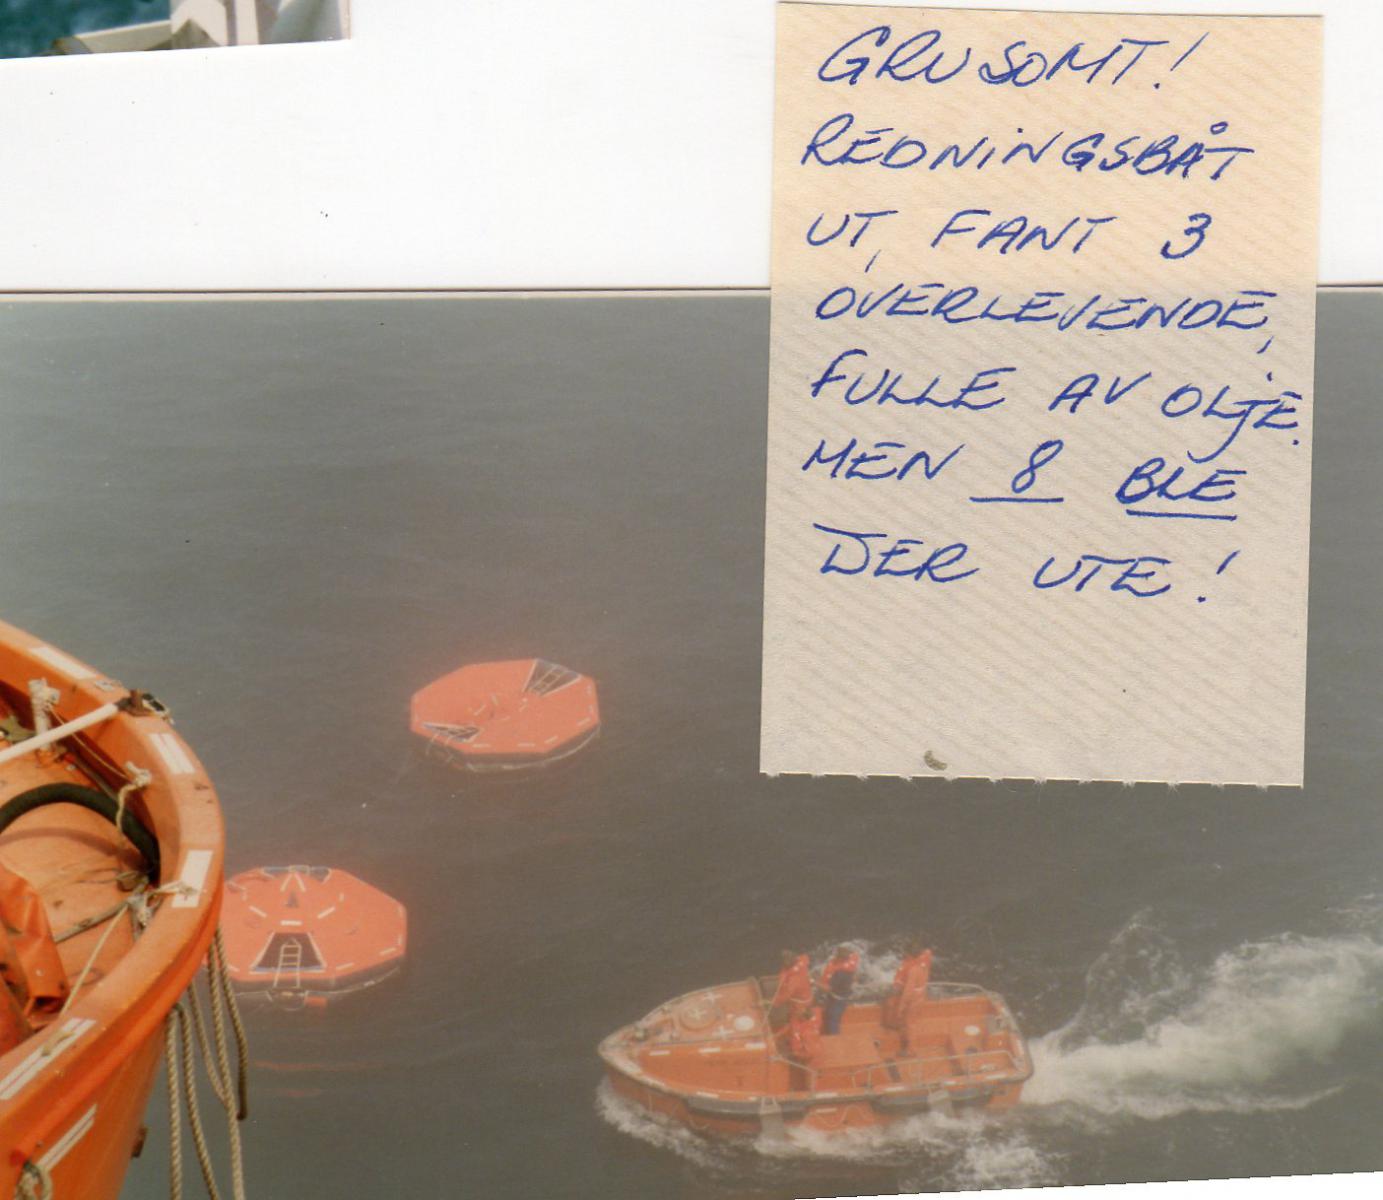 GRUSOMT!
REDNINGSBÅT
UT, FANT 3
OVERLEVENDE,
FULLE AV OLJE.
MEN 8 BLE
DER UTE!